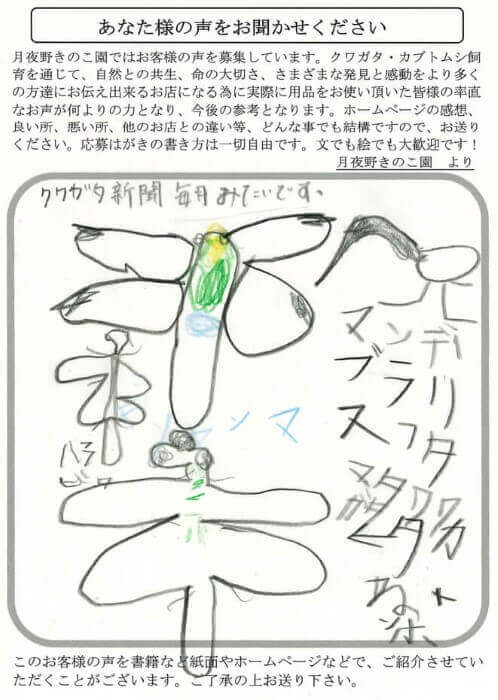 あなた様の声をお聞かせください
月夜野きのこ園ではお客様の声を募集しています。クワガタ・カブトムシ飼
育を通じて、自然との共生、命の大切さ、さまざまな発見と感動をより多く
の方達にお伝え出来るお店になる為に実際に用品をお使い頂いた皆様の率直
なお声が何よりの力となり、今後の参考となります。ホームページの感想、
良い所、悪い所、他のお店との違い等、どんな事でも結構ですので、お送り
ください。応募はがきの書き方は一切自由です。文でも絵でも大歓迎です！
月夜野きのこ園　より
クワガタ新聞 毎月 みたいです。
マンデ
ブラリ
このお客様の声を書籍など紙面やホームページなどで、ご紹介させてい
ただくことがございます。ご了承の上お送り下さい。